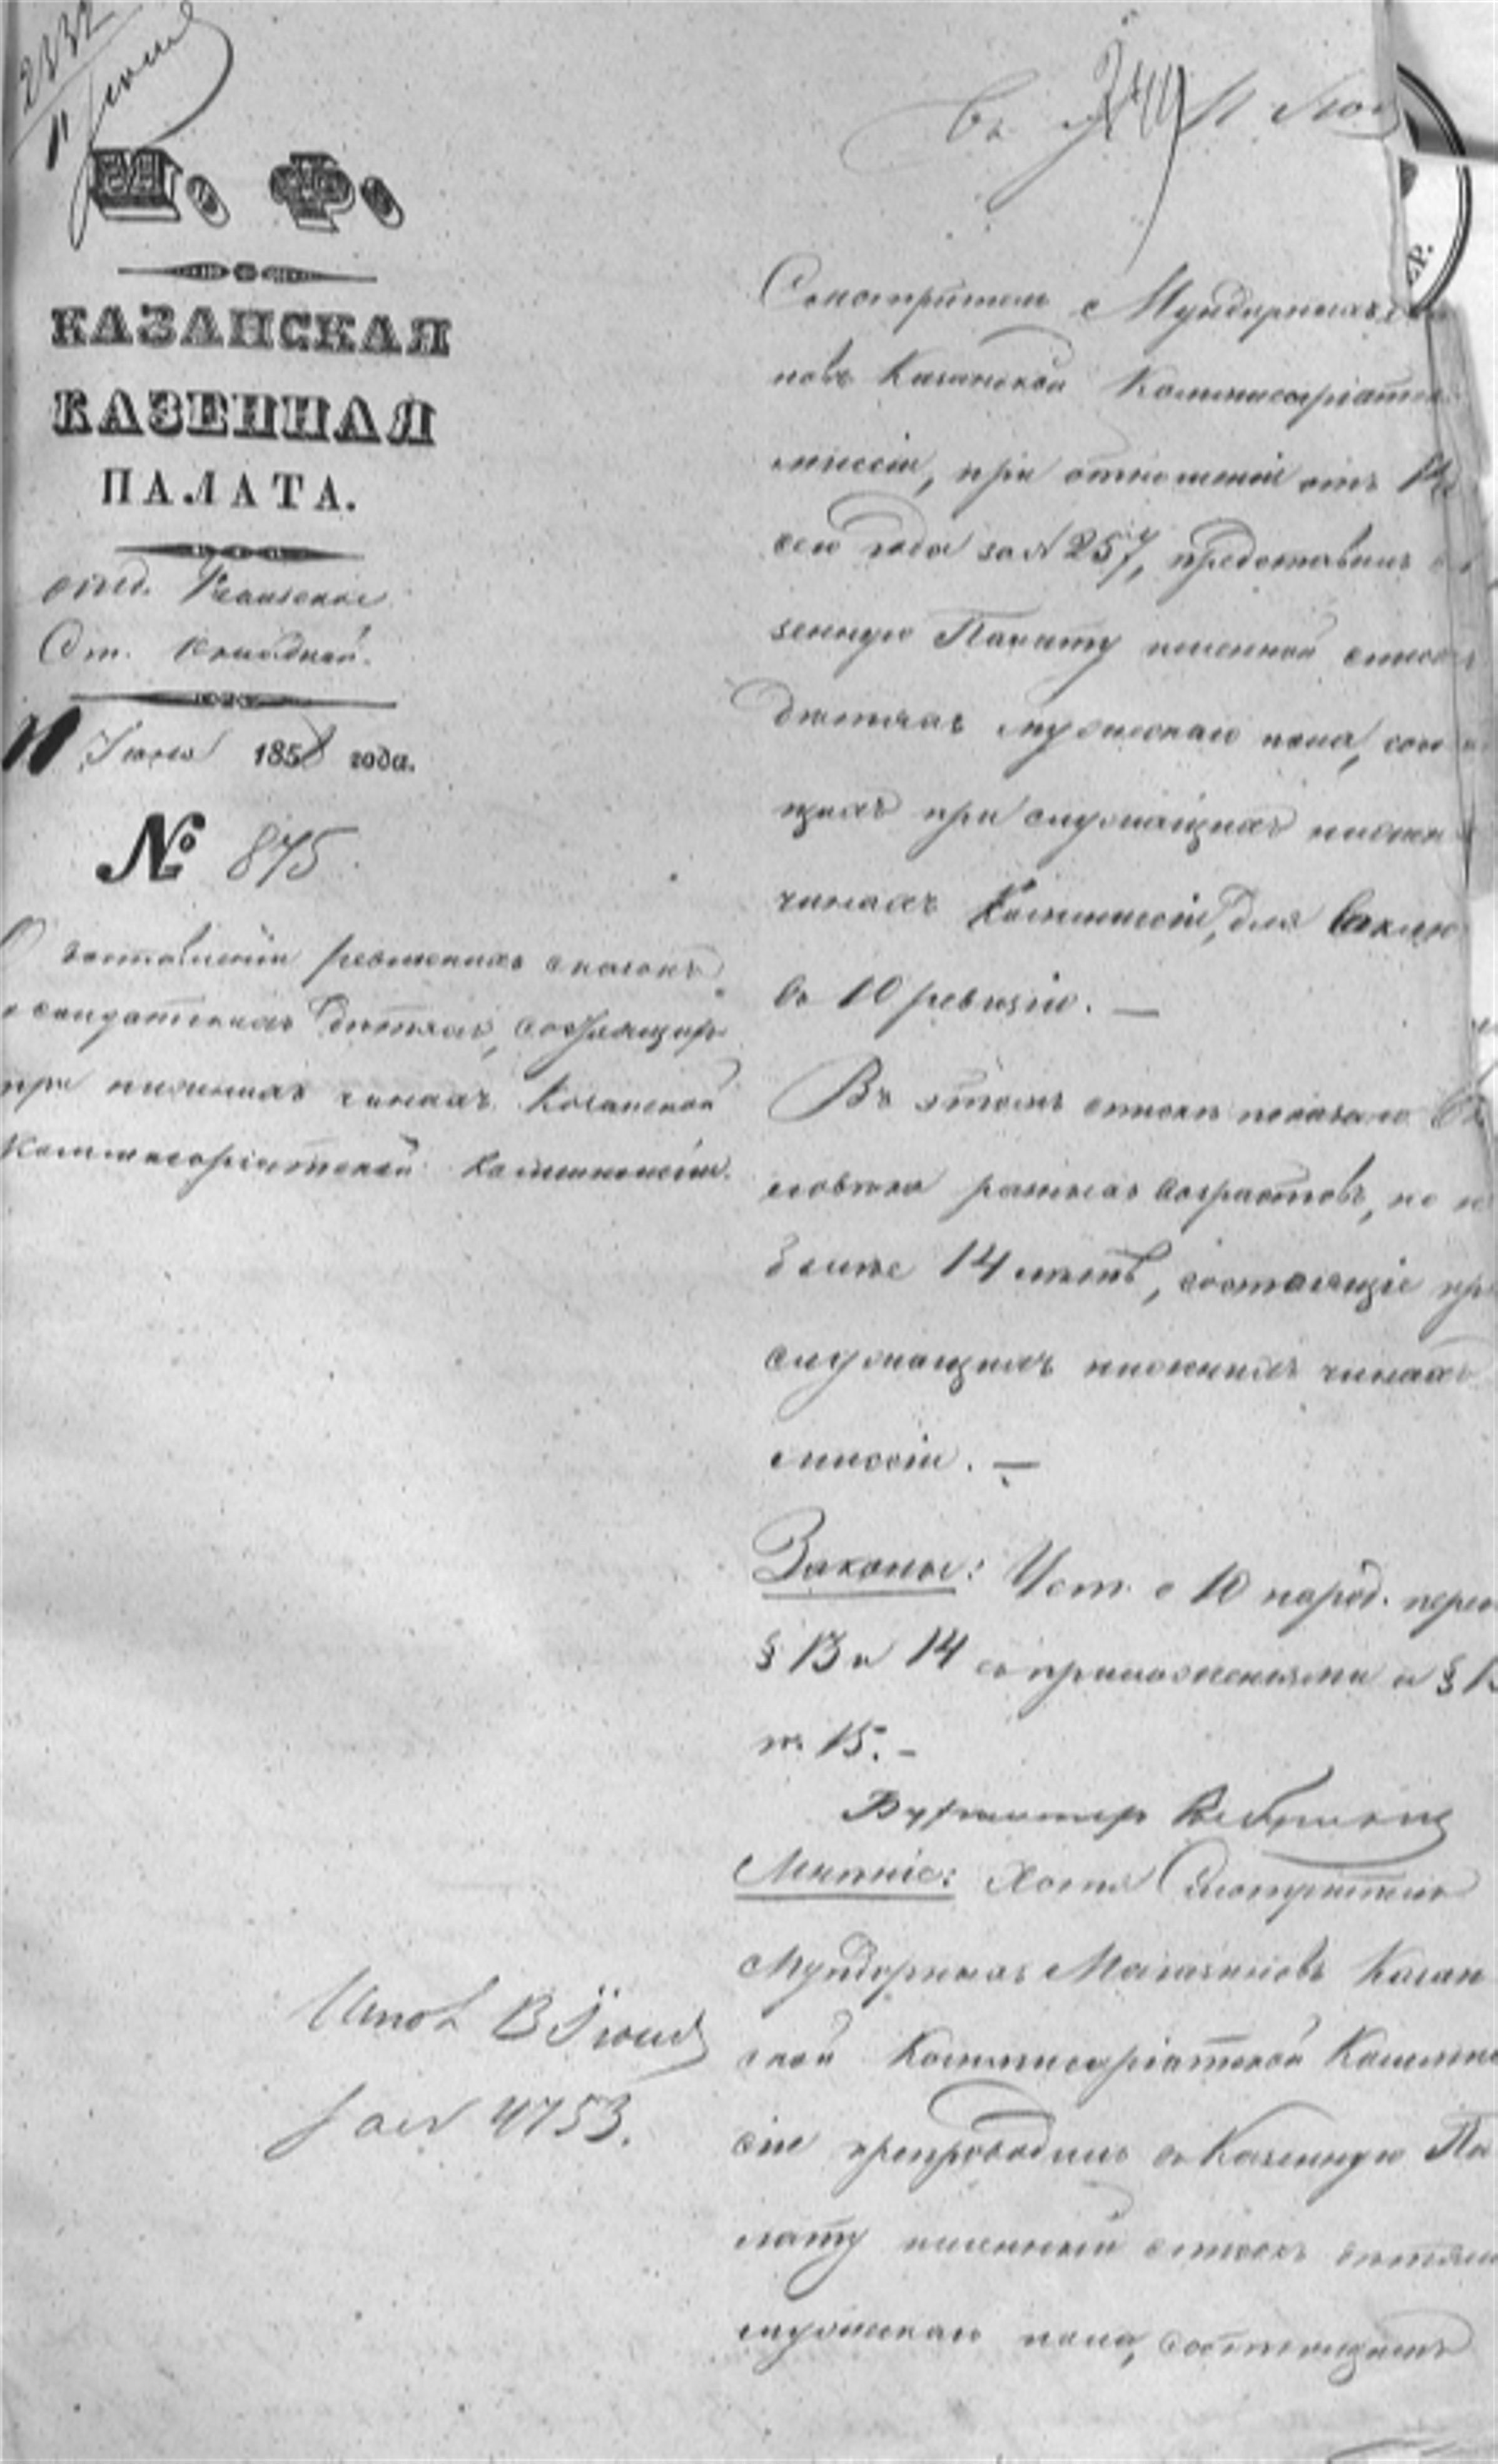 2332
11 Іюня
М. Ф.
КАЗАНСКАЯ
КАЗЕННАЯ
ПАЛАТА.
отд. Ревизское
Ст. Окладной.
11 Іюня 1858 года.
№ 875
О доставленіи ревизскихъ сказокъ
о солдатскихъ дѣтяхъ, состоящихъ
при нижнихъ чинахъ Казанской
Коммисаріатской Коммиссіи.
Смотритель Мундирныхъ
новъ Казанской Коммисаріатск
миссіи, при отношеніи отъ
сего года за № 257, представилъ
зенную Палату именной списокъ
дѣтяхъ мужескаго пола, состоя
щихъ при служащихъ нижн
чинахъ Коммиссіи, для включ
въ 10 ревизію. —
Въ этомъ спискѣ показано
ловѣка разныхъ возрастовъ, но не
болѣе 14 лѣтъ, состоящіе при
служащихъ нижнихъ чинахъ
миссіи. —
Законы: Уст. о 10 народ. переп
§ 13 и 14 съ приложеніями и §
п. 15. –
Бухгалтер
Мнѣніе: Хотя Смотритель
Мундирныхъ Магазиновъ Казан
ской Коммисаріатской Коммис
сіи препроводилъ въ Казенную Па
лату именный списокъ дѣтямъ
мужескаго пола, состоящимъ
Исполн. 13 Іюня
за № 4753.